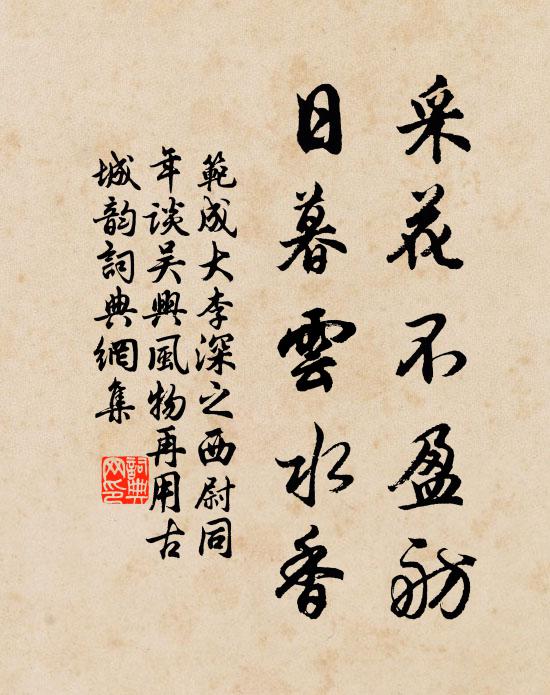 采花不盈舫
日暮雲水香
範成大李深之西尉同
年談吳興風物再用古
城韵詞典網集
詞典
网印